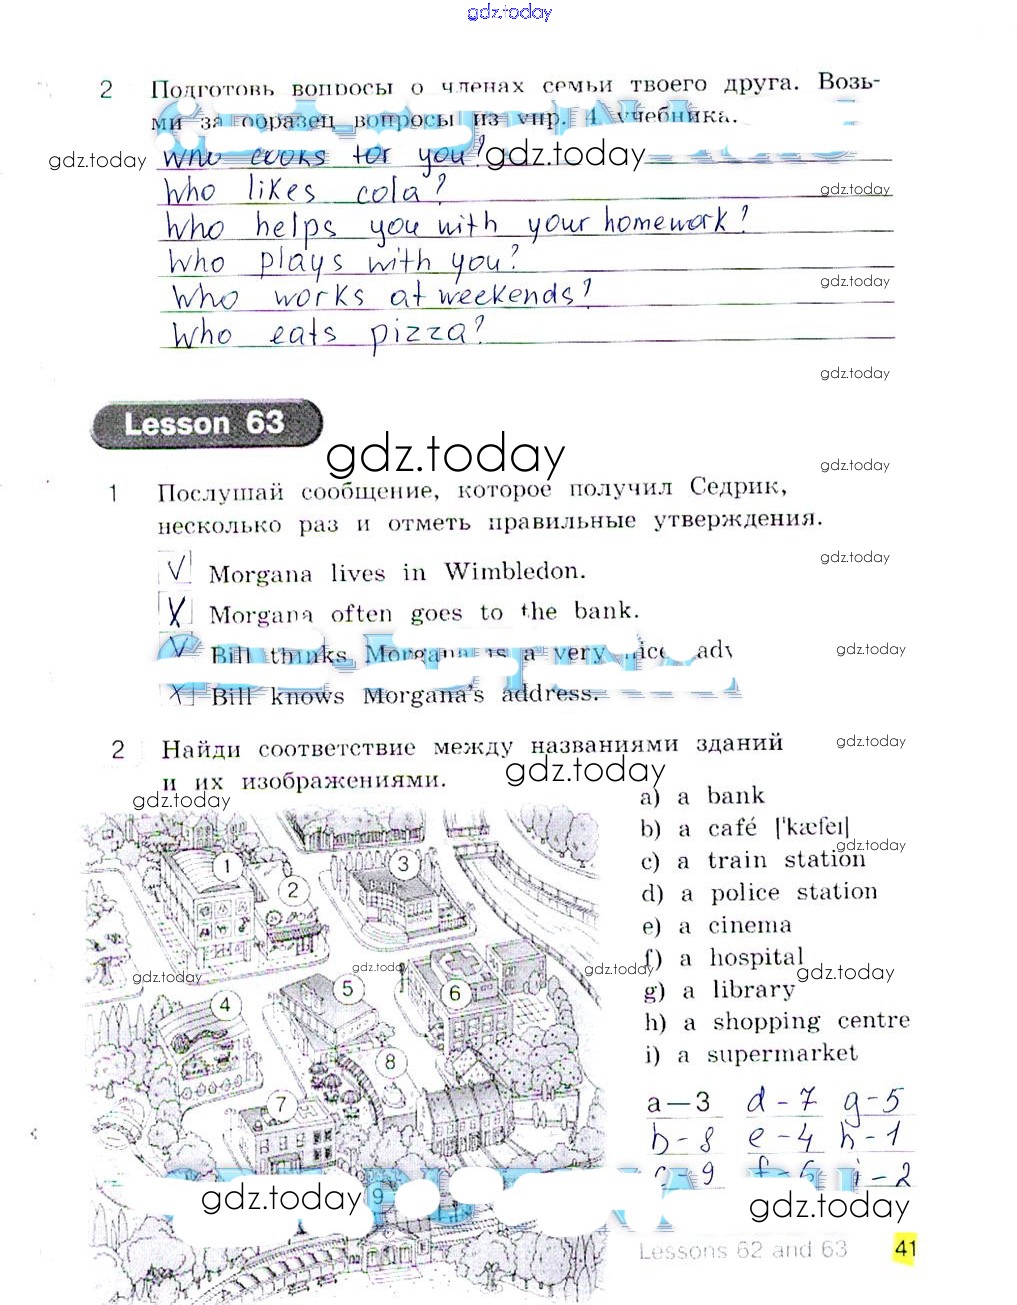 gdz.today
2 Подготовь вопросы о членах семьи твоего друга. Возь-
ми за образец вопросы из упр. 4 учебника.
gdz.today Who cooks for you? gdz.today
Who likes cola?
gdz.today
Who helps you with your homework?
Who plays with you?
gdz.today
Who works at weekends?
Who eats pizza?
gdz.today
Lesson 63
gdz.today
gdz.today
1 Послушай сообщение, которое получил Седрик,
несколько раз и отметь правильные утверждения.
gdz.today
V Morgana lives in Wimbledon.
X Morgana often goes to the bank.
V Bill thinks Morgana is a very nice
gdz.today
X Bill knows Morgana's address.
2 Найди соответствие между названиями зданий
и их изображениями.
gdz.today
gdz.today
gdz.today
a) a bank
b) a café ['kæfeɪ]
gdz.today
c) a train station
d) a police station
e) a cinema
f) a hospital
g) a library
h) a shopping centre
i) a supermarket
1
2
3
gdz.today
gdz.today
gdz.today
gdz.today
4
5
6
7
8
9
a—3 d-7 g-5
b-8 e-4 h-1
c-9 f-6 i-2
gdz.today
gdz.today
Lessons 62 and 63 41